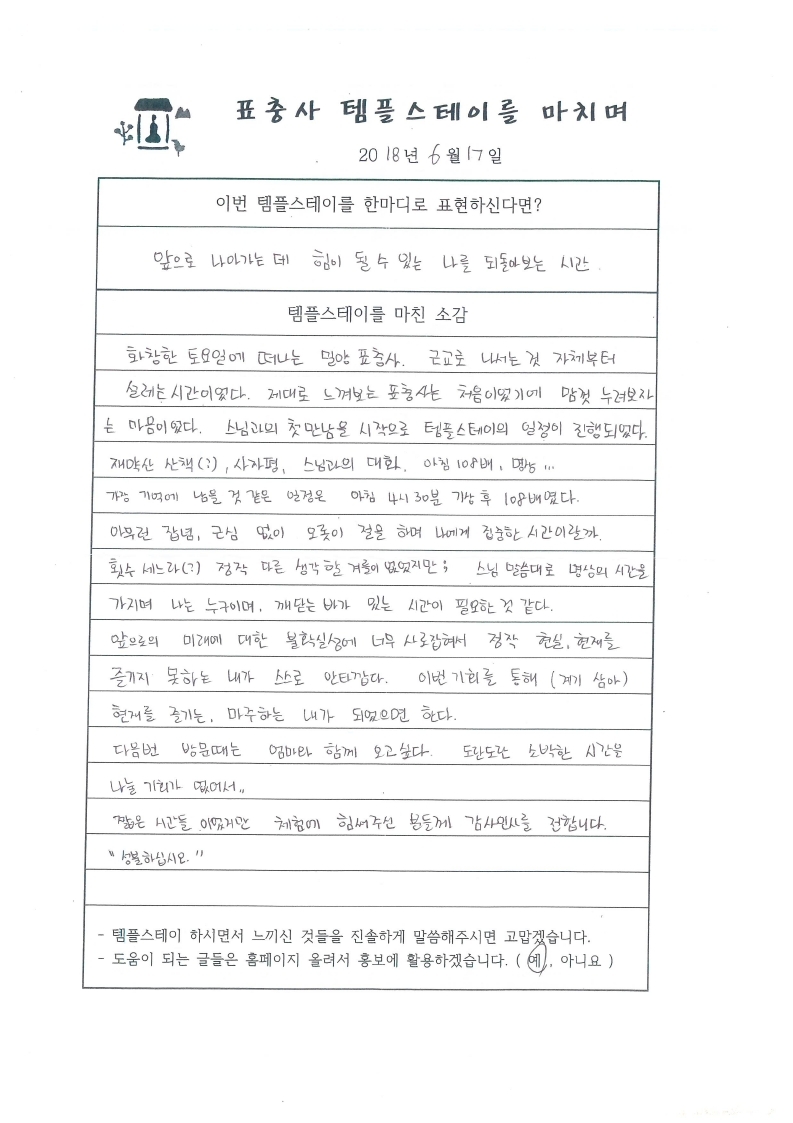 표충사 템플스테이를 마치며
2018년 6월 17일
이번 템플스테이를 한마디로 표현하신다면?
앞으로 나아가는 데 힘이 될 수 있는 나를 되돌아보는 시간.
템플스테이를 마친 소감
화창한 토요일에 떠나는 밀양 표충사. 근교로 나서는 것 자체부터
설레는 시간이었다. 제대로 느껴보는 표충사는 처음이었기에 맘껏 누려보자
는 마음이었다. 스님과의 첫 만남을 시작으로 템플스테이의 일정이 진행되었다.
재약산 산책(?), 사자평, 스님과의 대화. 아침 108배, 명상...
가장 기억에 남을 것 같은 일정은 아침 4시 30분 기상 후 108배였다.
아무런 잡념, 근심 없이 오롯이 절을 하며 나에게 집중한 시간이랄까.
횟수 세느라(?) 정작 다른 생각할 겨를이 없었지만; 스님 말씀대로 명상의 시간을
가지며 나는 누구이며, 깨닫는 바가 있는 시간이 필요한 것 같다.
앞으로의 미래에 대한 불확실성에 너무 사로잡혀서 정작 현실, 현재를
즐기지 못하는 내가 스스로 안타깝다. 이번 기회를 통해 (계기 삼아)
현재를 즐기는, 마주하는 내가 되었으면 한다.
다음번 방문때는 엄마와 함께 오고싶다. 도란도란 소박한 시간을
나눌 기회가 없어서..
짧은 시간들 이었지만 체험에 힘써주신 분들께 감사인사를 전합니다.
"성불하십시오."
- 템플스테이 하시면서 느끼신 것들을 진솔하게 말씀해주시면 고맙겠습니다.
- 도움이 되는 글들은 홈페이지 올려서 홍보에 활용하겠습니다. ( 예 , 아니요 )